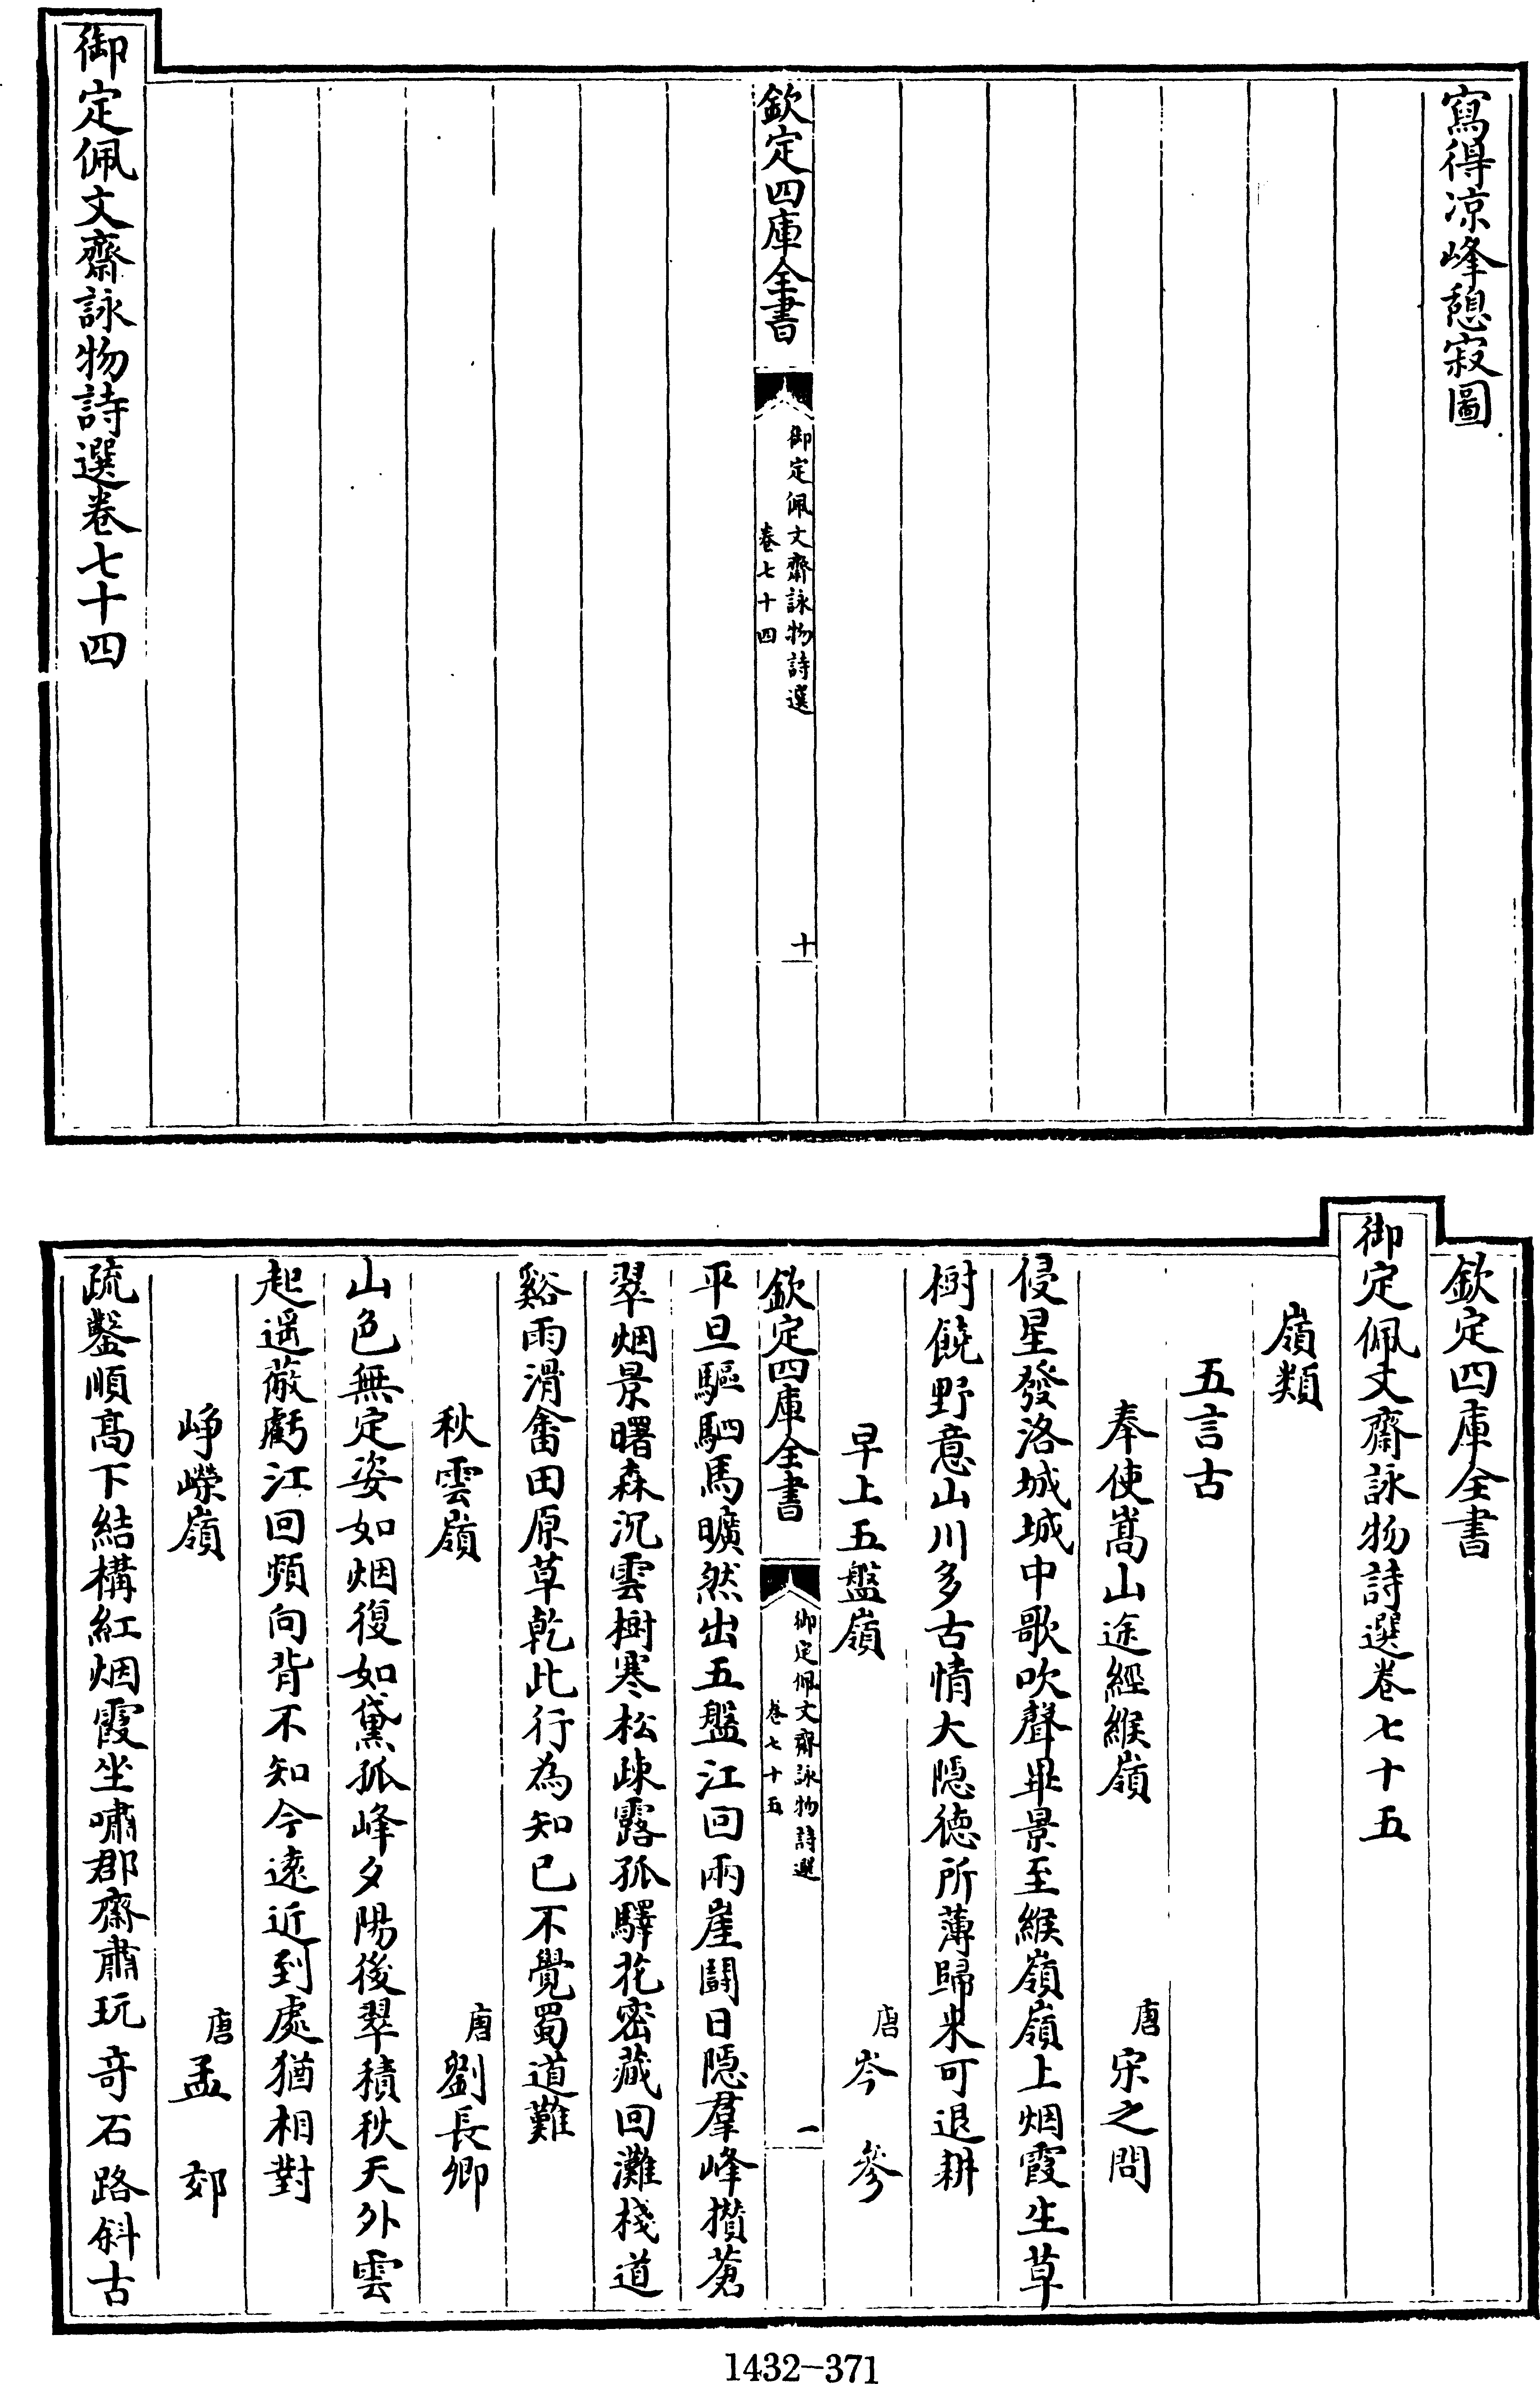 寫得凉峰憩寂圖
欽定四庫全書
御定佩文齋詠物詩選
卷七十四
十
御定佩文齋詠物詩選卷七十四
欽定四庫全書
御定佩文齋詠物詩選卷七十五
嶺類
五言古
奉使嵩山途經緱嶺
唐宋之問
侵星發洛城城中歌吹聲畢景至緱嶺嶺上烟霞生草
樹饒野意山川多古情大隱德所薄歸來可退耕
早上五盤嶺
唐岑參
欽定四庫全書
御定佩文齋詠物詩選
卷七十五
一
平旦驅駟馬曠然出五盤江回兩崖鬭日隱羣峰攅蒼
翠烟景曙森沉雲樹寒松疎露孤驛花密藏回灘棧道
谿雨滑畬田原草乾此行為知己不覺蜀道難
秋雲嶺
唐劉長卿
山色無定姿如烟復如黛孤峰夕陽後翠積秋天外雲
起遥蔽虧江回頻向背不知今遠近到處猶相對
崢嶸嶺
唐孟郊
疏鑿順高下結構紅烟霞坐嘯郡齋肅玩奇石路斜古
1432-371